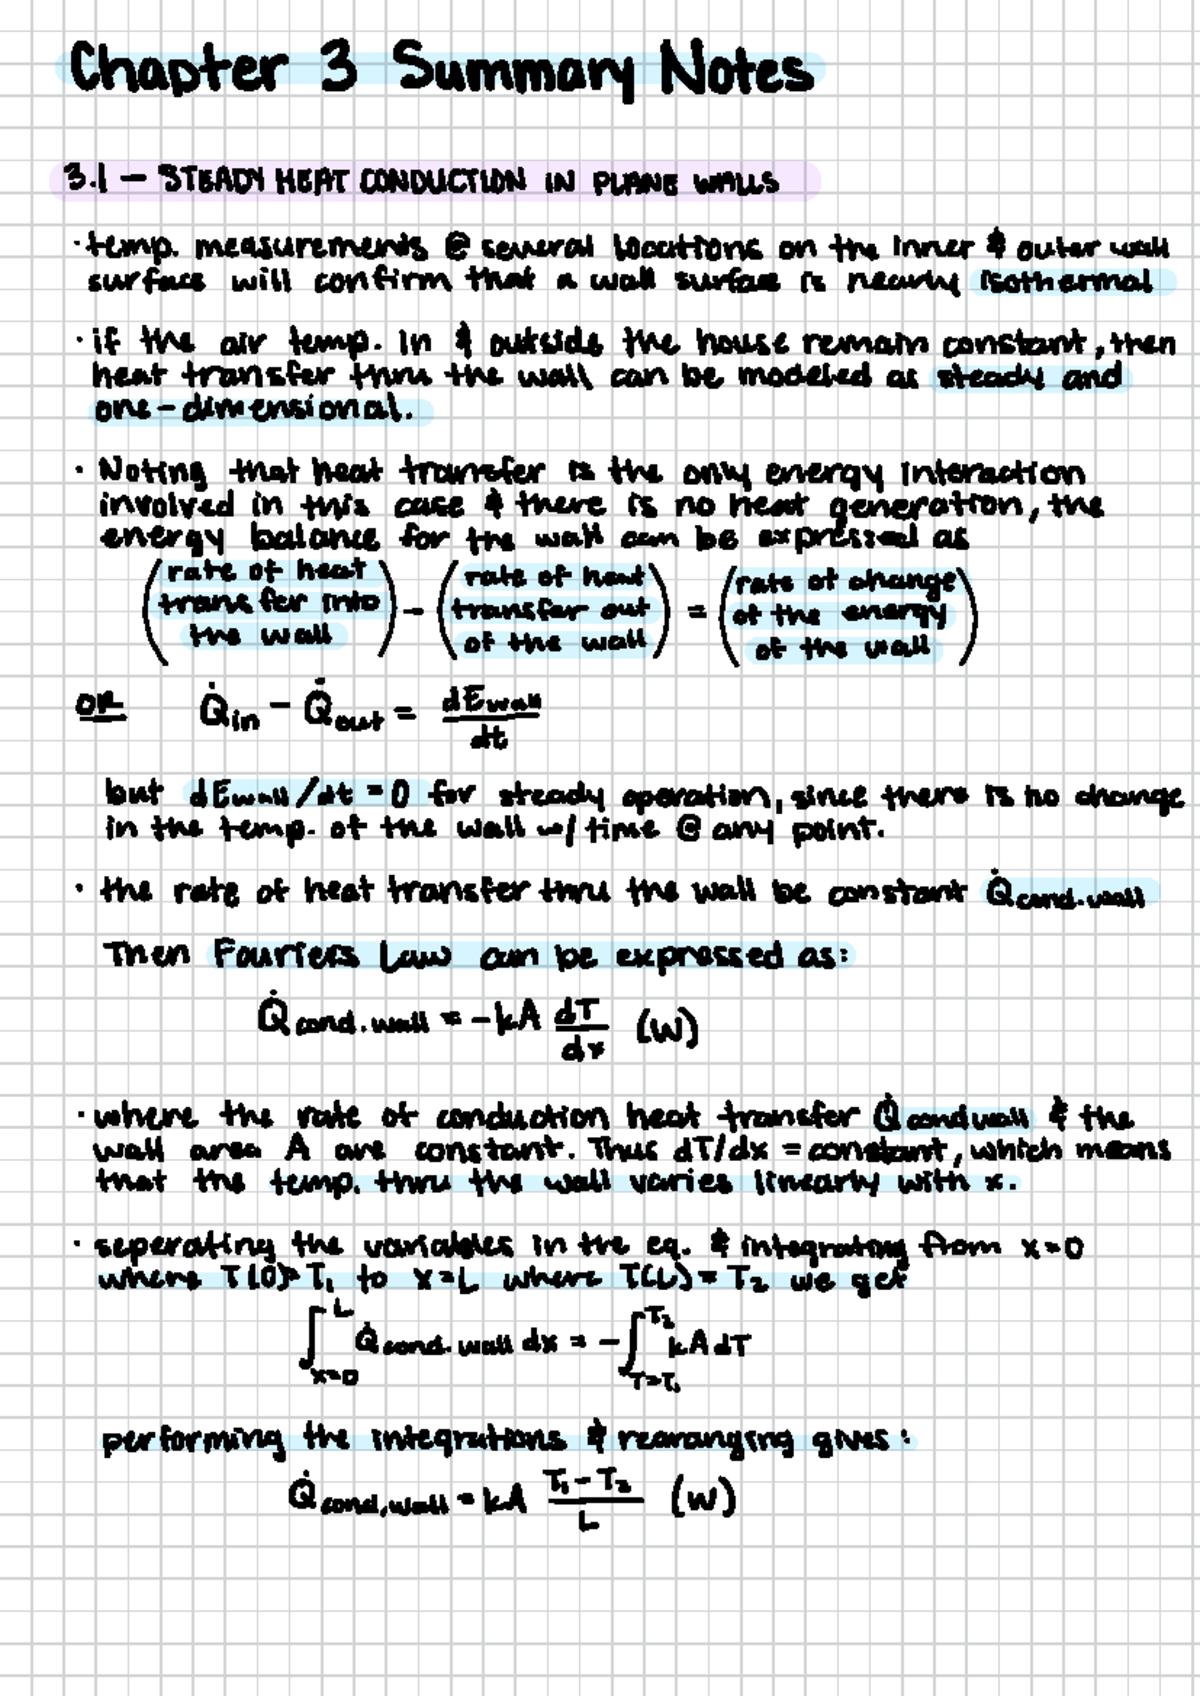 Chapter 3 Summary Notes
3.1 — STEADY HEAT CONDUCTION IN PLANE WALLS
· temp. measurements @ several locations on the inner & outer wall
surface will confirm that a wall surface is nearly isothermal
· if the air temp. in & outside the house remain constant, then
heat transfer thru the wall can be modeled as steady and
one-dimensional.
· Noting that heat transfer is the only energy interaction
involved in this case & there is no heat generation, the
energy balance for the wall can be expressed as
(rate of heat transfer into the wall) - (rate of heat transfer out of the wall) = (rate of change of the energy of the wall)
OR Q̇in - Q̇out = dEwall/dt
but dEwall/dt = 0 for steady operation, since there is no change
in the temp. of the wall w/ time @ any point.
· the rate of heat transfer thru the wall be constant Q̇cond.wall
Then Fouriers Law can be expressed as:
Q̇cond.wall = -kA dT/dx (W)
· where the rate of conduction heat transfer Q̇cond wall & the
wall area A are constant. Thus dT/dx = constant, which means
that the temp. thru the wall varies linearly with x.
· seperating the variables in the eq. & integrating from x=0
where T(0)=T₁ to x=L where T(L)=T₂ we get
∫ₓ₌₀ᴸ Q̇cond.wall dx = -∫_{T=T₁}^{T₂} kA dT
performing the integrations & rearanging gives:
Q̇cond,wall = kA (T₁-T₂)/L (W)